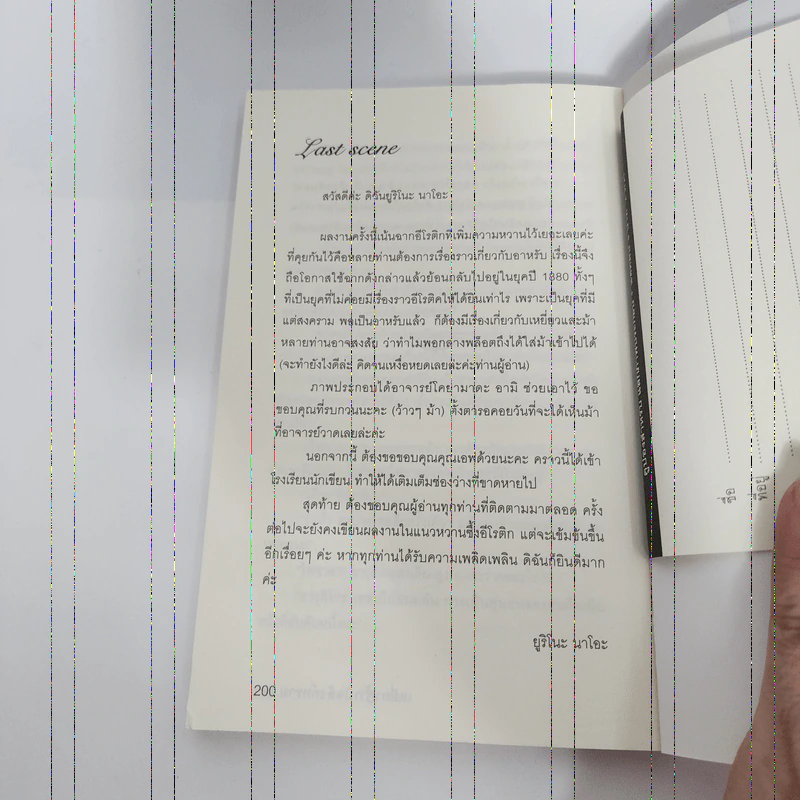 Last scene
สวัสดีค่ะ ดิฉันยูริโนะ นาโอะ
ผลงานครั้งนี้เน้นฉากอีโรติกที่เพิ่มความหวานไว้เยอะเลยค่ะ
ที่คุยกันไว้คือหลายท่านต้องการเรื่องราวเกี่ยวกับอาหรับ เรื่องนี้จึง
ถือโอกาสใช้ฉากดังกล่าวแล้วย้อนกลับไปอยู่ในยุคปี 1880 ทั้งๆ
ที่เป็นยุคที่ไม่ค่อยมีเรื่องราวอีโรติคให้ได้ยินเท่าไร เพราะเป็นยุคที่มี
แต่สงคราม พอเป็นอาหรับแล้ว ก็ต้องมีเรื่องเกี่ยวกับเหยี่ยวและม้า
หลายท่านอาจสงสัย ว่าทำไมพอกลางพล็อตถึงได้ใส่ม้าเข้าไปได้
(จะทำยังไงดีล่ะ คิดจนเหงื่อหยดเลยล่ะค่ะท่านผู้อ่าน)
ภาพประกอบได้อาจารย์โคยามาดะ อามิ ช่วยเอาไว้ ขอ
ขอบคุณที่รบกวนนะคะ (ว้าวๆ ม้า) ตั้งตารอคอยวันที่จะได้เห็นม้า
ที่อาจารย์วาดเลยล่ะค่ะ
นอกจากนี้ ต้องขอขอบคุณคุณเอฟด้วยนะคะ คราวนี้ได้เข้า
โรงเรียนนักเขียน ทำให้ได้เติมเต็มช่องว่างที่ขาดหายไป
สุดท้าย ต้องขอบคุณผู้อ่านทุกท่านที่ติดตามมาตลอด ครั้ง
ต่อไปจะยังคงเขียนผลงานในแนวหวานซึ้งอีโรติก แต่จะเข้มข้นขึ้น
อีกเรื่อยๆ ค่ะ หากทุกท่านได้รับความเพลิดเพลิน ดิฉันก็ยินดีมาก
ค่ะ
ยูริโนะ นาโอะ
200
ชื่อ
ที่อยู่